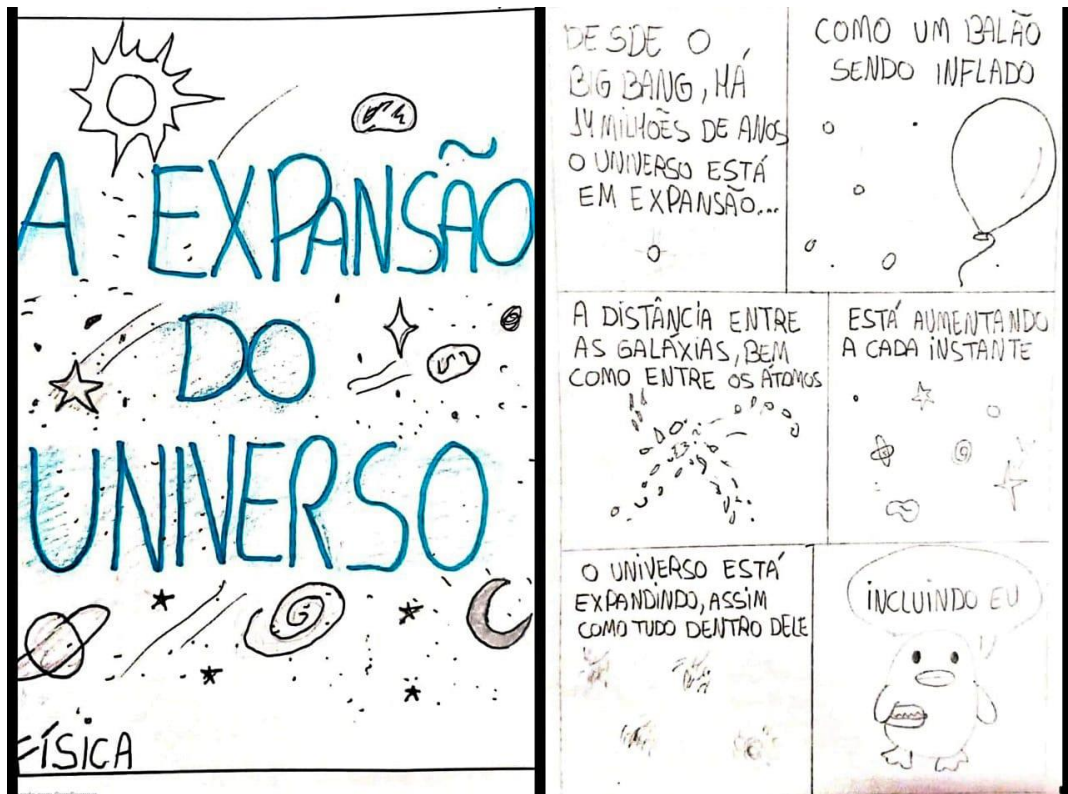 A EXPANSÃO
DO
UNIVERSO
FÍSICA
DESDE O
BIG BANG, HÁ
14 MILHÕES DE ANOS
O UNIVERSO ESTÁ
EM EXPANSÃO...
COMO UM BALÃO
SENDO INFLADO
A DISTÂNCIA ENTRE
AS GALÁXIAS, BEM
COMO ENTRE OS ÁTOMOS
ESTÁ AUMENTANDO
A CADA INSTANTE
O UNIVERSO ESTÁ
EXPANDINDO, ASSIM
COMO TUDO DENTRO DELE
INCLUINDO EU